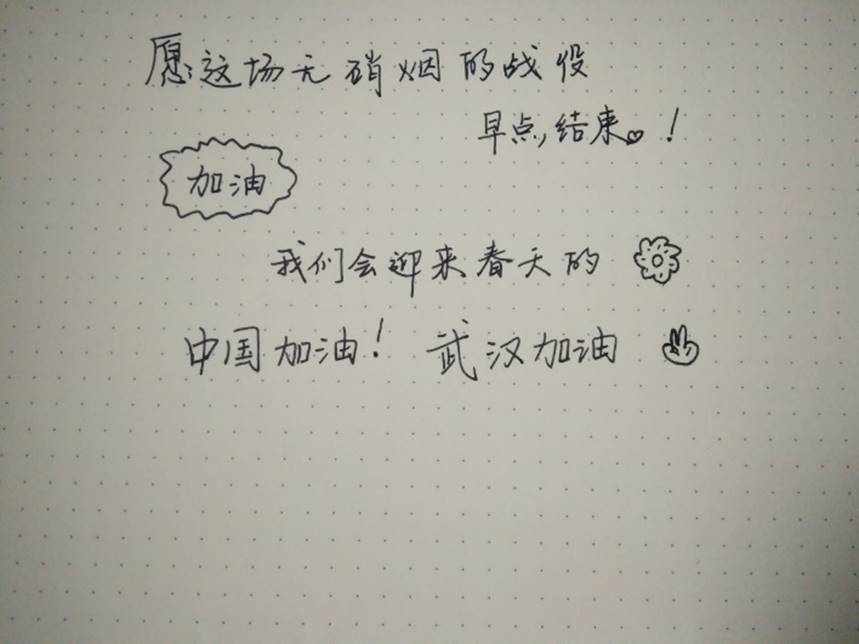 愿这场无硝烟的战役
早点结束!
加油
我们会迎来春天的
中国加油! 武汉加油